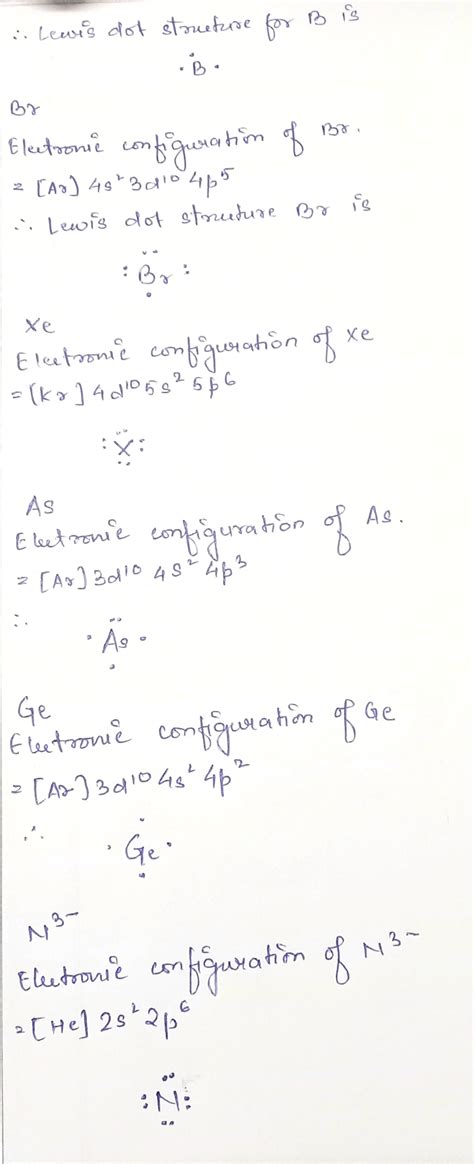 ∴ Lewis dot structure for B is
·Ḃ·
Br
Electronic configuration of Br.
= [Ar] 4s² 3d¹⁰ 4p⁵
∴ Lewis dot structure Br is
:Br:
Xe
Electronic configuration of Xe
= [Kr] 4d¹⁰ 5s² 5p⁶
:X:
As
Electronic configuration of As.
= [Ar] 3d¹⁰ 4s² 4p³
∴
·As·
Ge
Electronic configuration of Ge
= [Ar] 3d¹⁰ 4s² 4p²
∴
·Ge·
N³⁻
Electronic configuration of N³⁻
= [He] 2s² 2p⁶
:N: